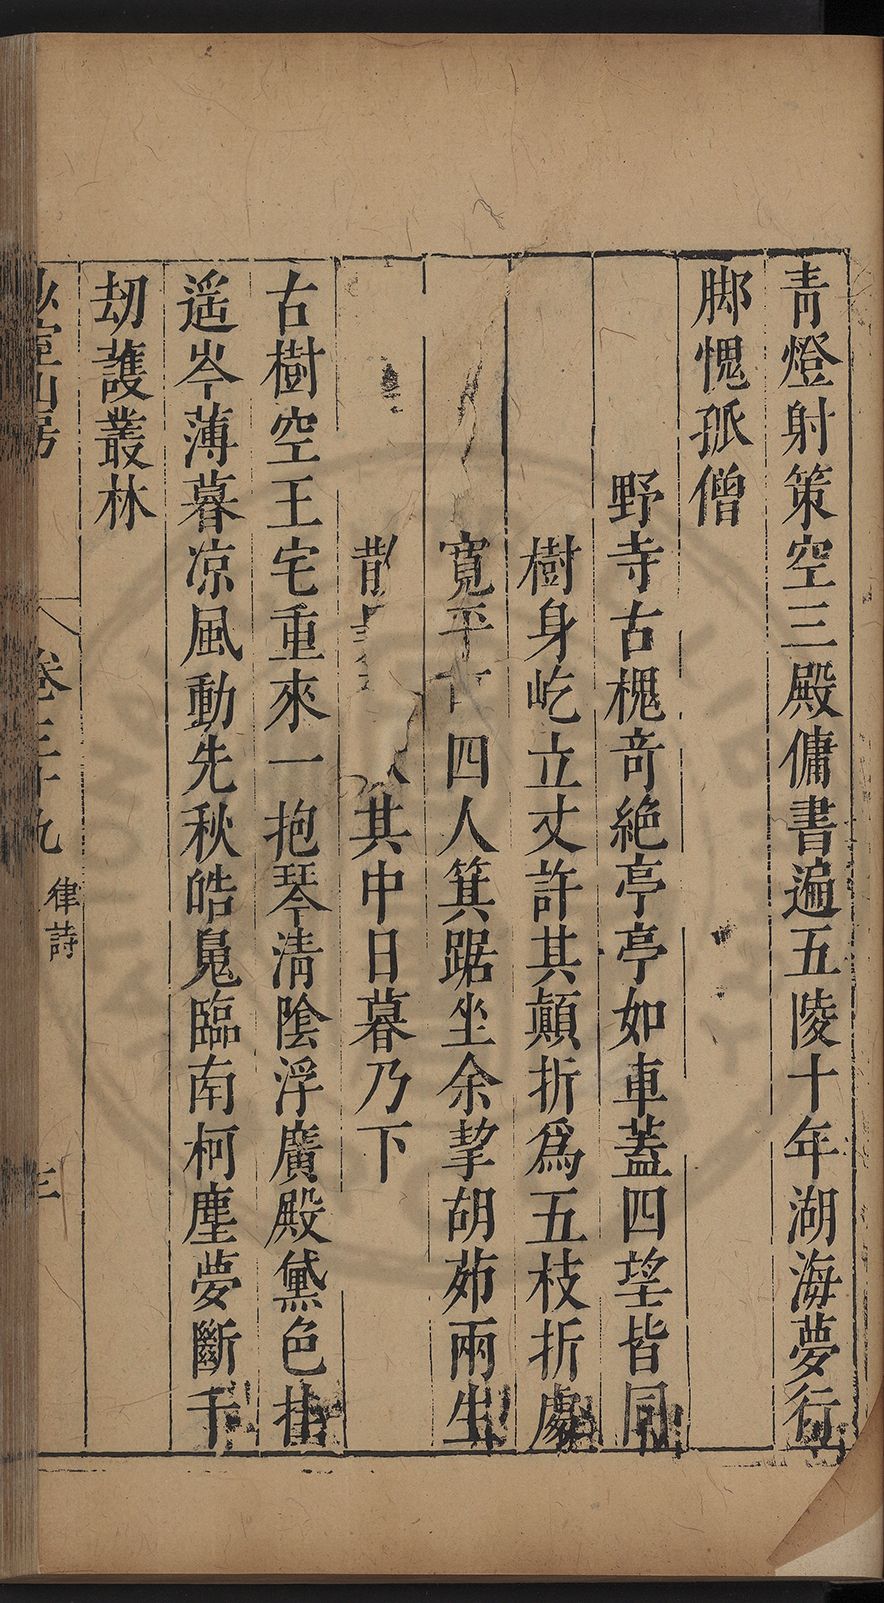 青燈射策空三殿傭書遍五陵十年湖海夢行
脚愧孤僧
野寺古槐奇絶亭亭如車蓋四望皆同
樹身屹立丈許其顛折爲五枝折處
寬平 四人箕踞坐余挈胡茆兩生
散 其中日暮乃下
古樹空王宅重來一抱琴清陰浮廣殿黛色挂
遥岑薄暮凉風動先秋皓鳬臨南柯塵夢斷千
刼護叢林
山房
卷三十九
律詩
三